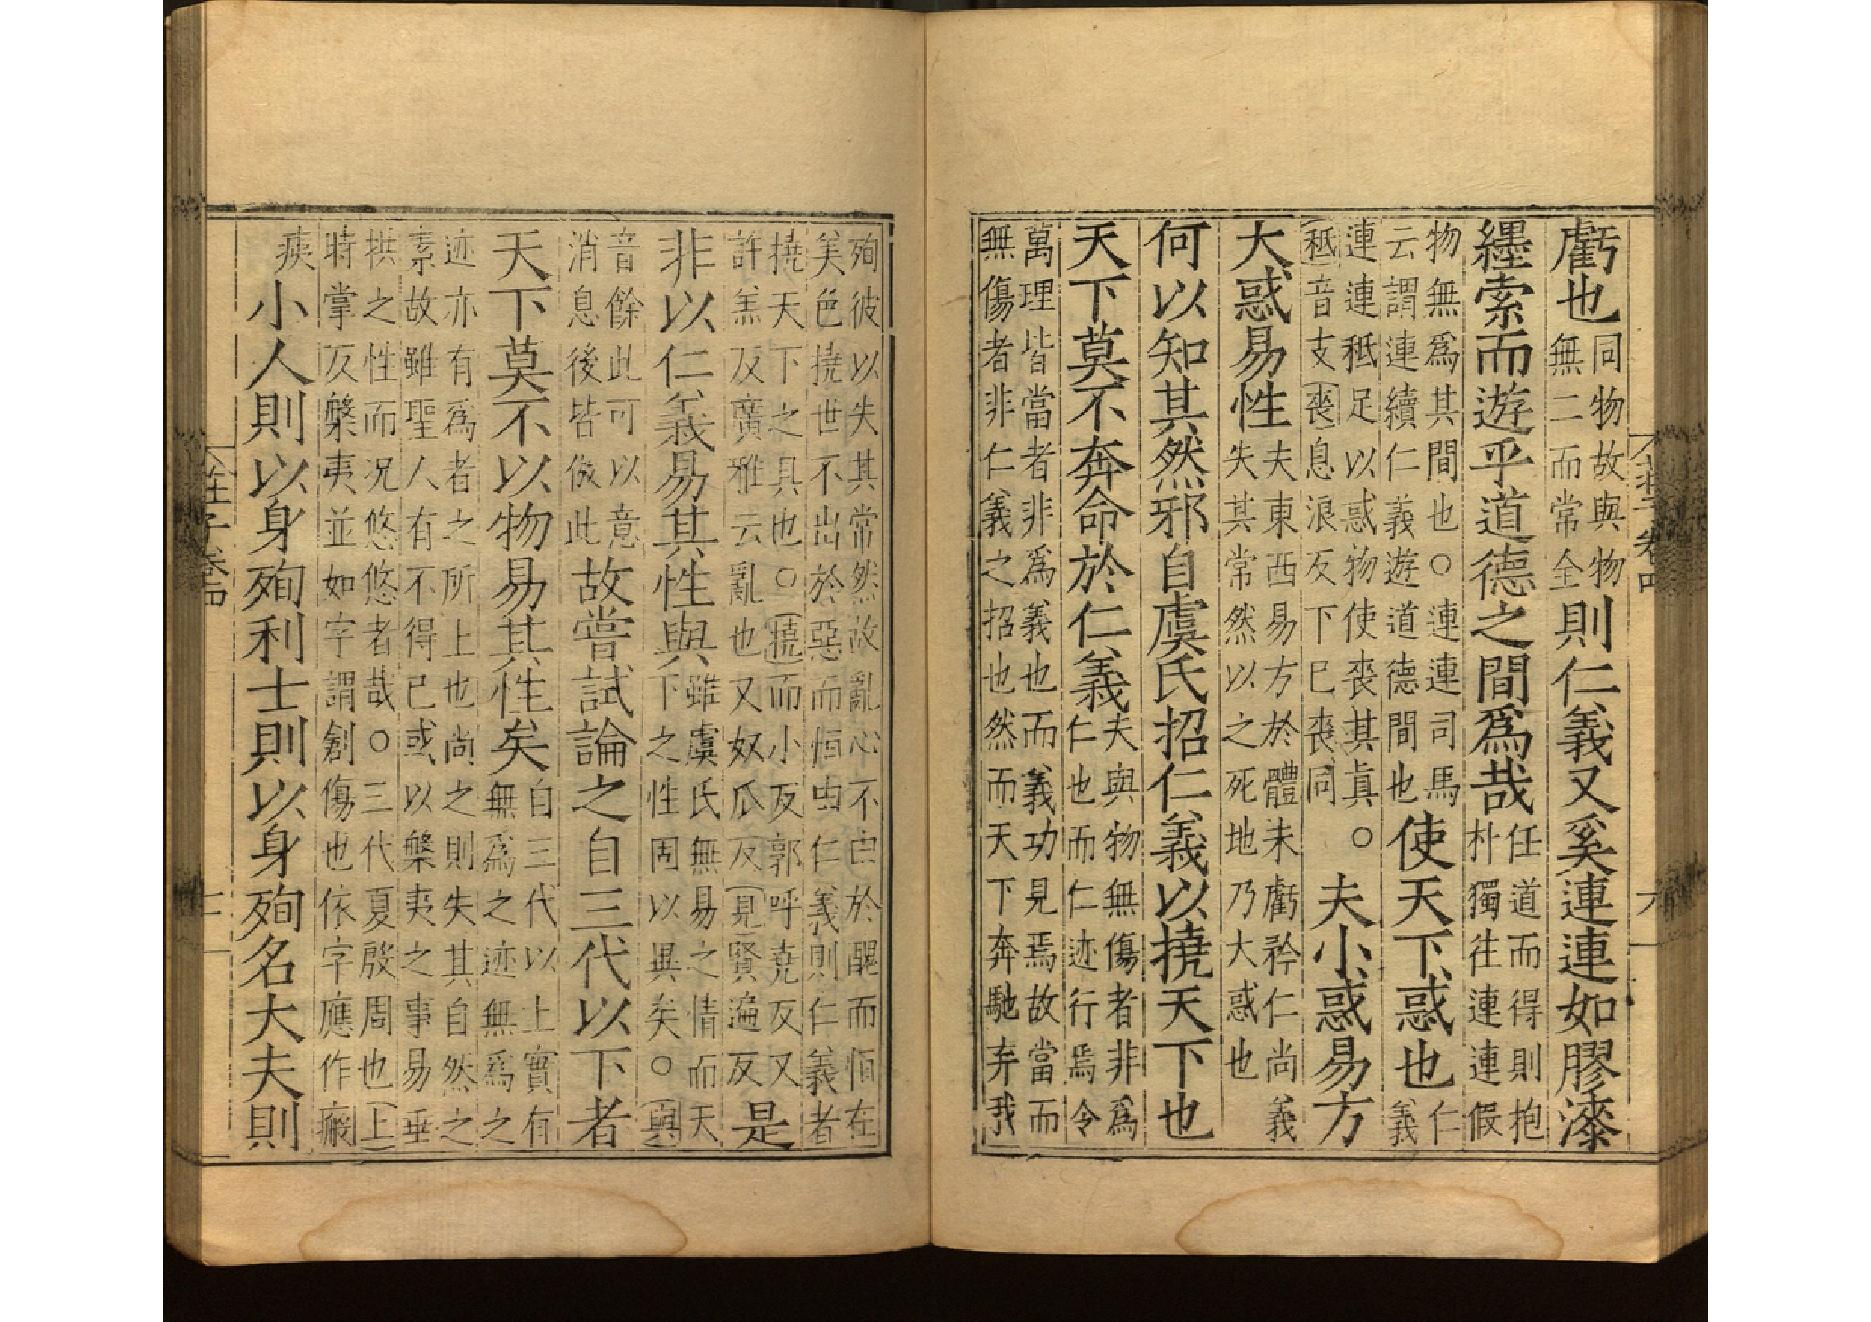 虧也同物故與物無二而常全則仁義又奚連連如膠漆
纆索而遊乎道德之間爲哉任道而得則抱朴獨往連連假
物無爲其間也○連連司馬云謂連續仁義遊道德間也使天下惑也仁義
連連秪足以惑物使喪其真○秪音支喪息浪反下已喪同夫小惑易方
大惑易性夫東西易方於體未虧矜仁尚義失其常然以之死地乃大惑也
何以知其然邪自虞氏招仁義以撓天下也
天下莫不奔命於仁義夫與物無傷者非爲仁也而仁迹行焉令
萬理皆當者非爲義也而義功見焉故當而無傷者非仁義之招也然而天下奔馳弃我
殉彼以失其常然故亂心不由於醜而恒在美色撓世不出於惡而恒由仁義則仁義者
撓天下之具也○撓而小反郭呼堯反又許羔反廣雅云亂也又奴爪反見賢遍反是
非以仁義易其性與雖虞氏無易之情而天下之性固以異矣○與
音餘此可以意消息後皆倣此故嘗試論之自三代以下者
天下莫不以物易其性矣自三代以上實有無爲之迹無爲之
迹亦有爲者之所上也尚之則失其自然之素故雖聖人有不得已或以槃夷之事易垂
拱之性而况悠悠者哉○三代夏殷周也上時掌反槃夷並如字謂創傷也依字應作瘢
痍小人則以身殉利士則以身殉名大夫則